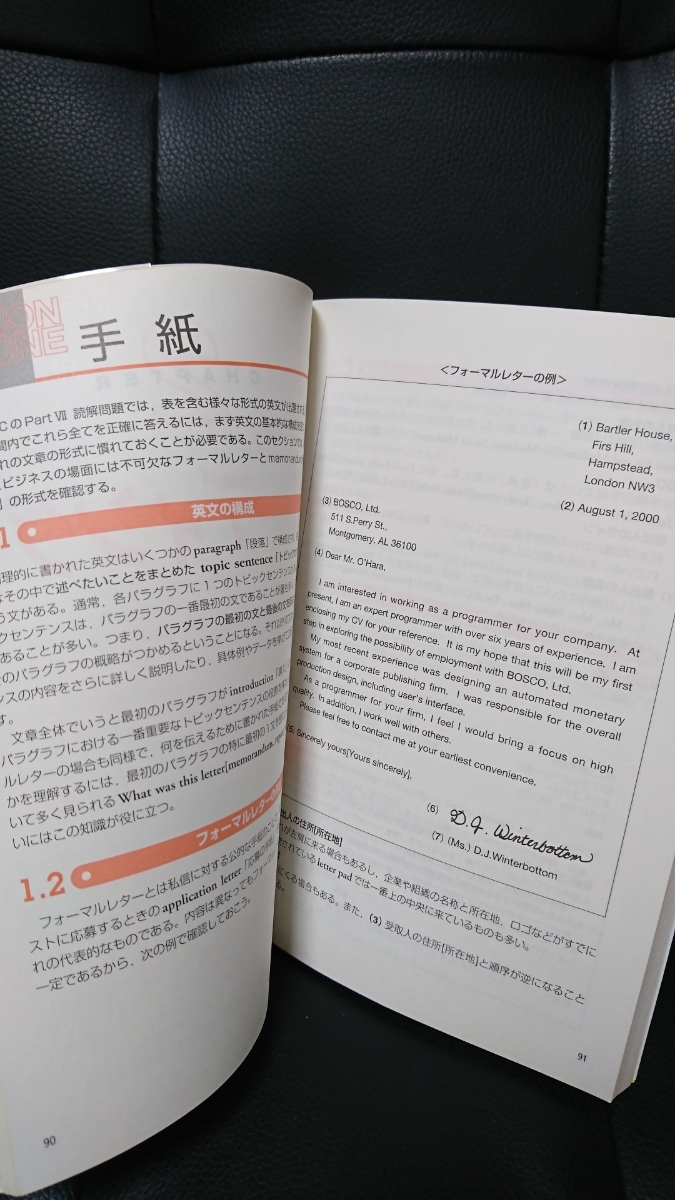 ION
ONE
手紙
CのPart Ⅶ 読解問題では，表を含む様々な形式の英文が出題
間内でこれら全てを正確に答えるには，まず英文の基本的な構成を
れの文章の形式に慣れておくことが必要である。このセクションでは
ビジネスの場面には不可欠なフォーマルレターとmemorandum
の形式を確認する。
1
英文の構成
理的に書かれた英文はいくつかの paragraph「段落」で構成され
その中で述べたいことをまとめた topic sentence「トピック
う文がある。通常，各パラグラフに1つのトピックセンテンスが
クセンテンスは，パラグラフの一番最初の文であることが
あることが多い。つまり，パラグラフの最初の文と最後の文
のパラグラフの概略がつかめるということになる。それ以外
ンスの内容をさらに詳しく説明したり，具体例やデータを挙げて
す。
文章全体でいうと最初のパラグラフが introduction「導入」
パラグラフにおける一番重要なトピックセンテンスの役割を
ルレターの場合も同様で，何を伝えるために書かれた手紙
かを理解するには，最初のパラグラフの特に最初の1文
いて多く見られる What was this letter[memorandum,
いにはこの知識が役に立つ。
1.2
フォーマルレターの
フォーマルレターとは私信に対する公的な手紙のこと
ストに応募するときの application letter「応募の
れの代表的なものである。内容は異なってもフォー
一定であるから，次の例で確認しておこう。
90
<フォーマルレターの例>
(1) Bartler House,
Firs Hill,
Hampstead,
London NW3
(2) August 1, 2000
(3) BOSCO, Ltd.
511 S.Perry St.,
Montgomery, AL 36100
(4) Dear Mr. O'Hara,
I am interested in working as a programmer for your company. At
present, I am an expert programmer with over six years of experience. I am
enclosing my CV for your reference. It is my hope that this will be my first
step in exploring the possibility of employment with BOSCO, Ltd.
My most recent experience was designing an automated monetary
system for a corporate publishing firm. I was responsible for the overall
production design, including user's interface.
As a programmer for your firm, I feel I would bring a focus on high
quality. In addition, I work well with others.
Please feel free to contact me at your earliest convenience.
5) Sincerely yours[Yours sincerely],
(6) D.J. Winterbottom
(7) (Ms.) D.J.Winterbottom
出人の住所[所在地]
が左肩に来る場合もあるし，企業や組織の名称と所在地，ロゴなどがすでに
されている letter pad では一番上の中央に来ているものも多い。
にくる場合もある。また，(3) 受取人の住所[所在地]と順序が逆になること
る。
91